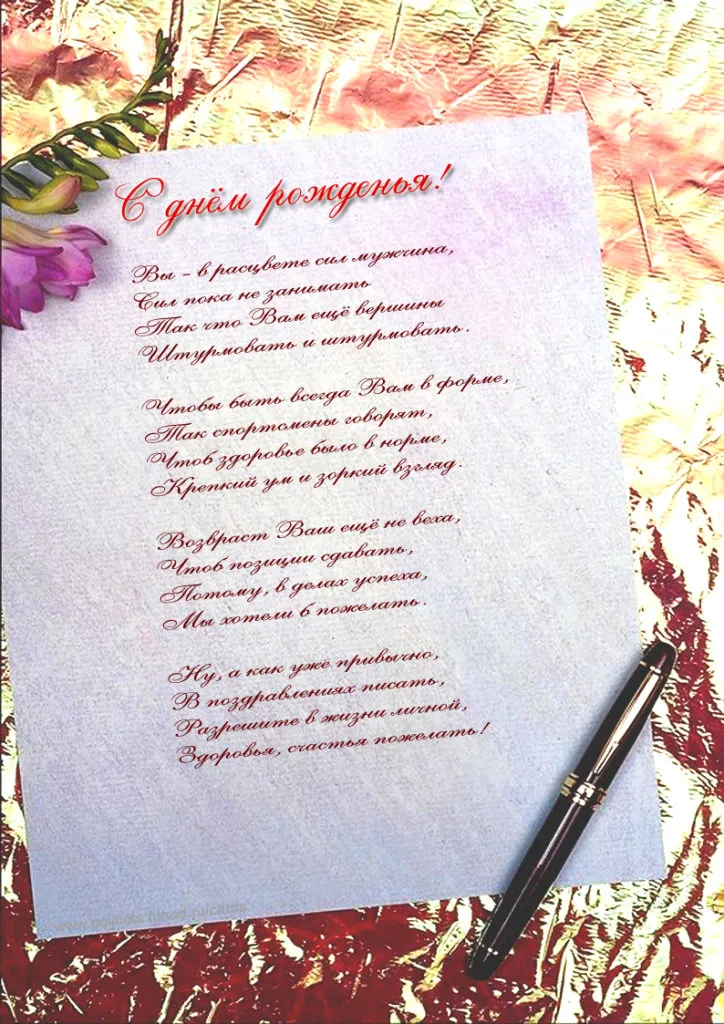 С днём рожденья!
Вы - в расцвете сил мужчина,
Сил пока не занимать
Так что Вам ещё вершины
Штурмовать и штурмовать.
Чтобы быть всегда Вам в форме,
Так спортсмены говорят,
Чтоб здоровье было в норме,
Крепкий ум и зоркий взгляд.
Возвраст Ваш ещё не веха,
Чтоб позиции сдавать,
Потому, в делах успеха,
Мы хотели б пожелать.
Ну, а как уже привычно,
В поздравлениях писать,
Разрешите в жизни личной,
Здоровья, счастья пожелать!